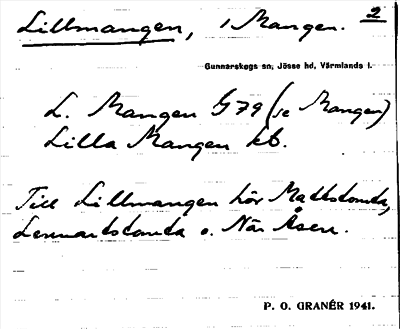 Lillmangen, i Mangen. 2
Gunnarskogs sn, Jösse hd, Värmlands l.
L. Mangen G79 (se Mangen)
Lilla Mangen kb.
Till Lillmangen hör Mattstanda,
Lennartstanda o. När Åsen.
P. O. GRANÉR 1941.